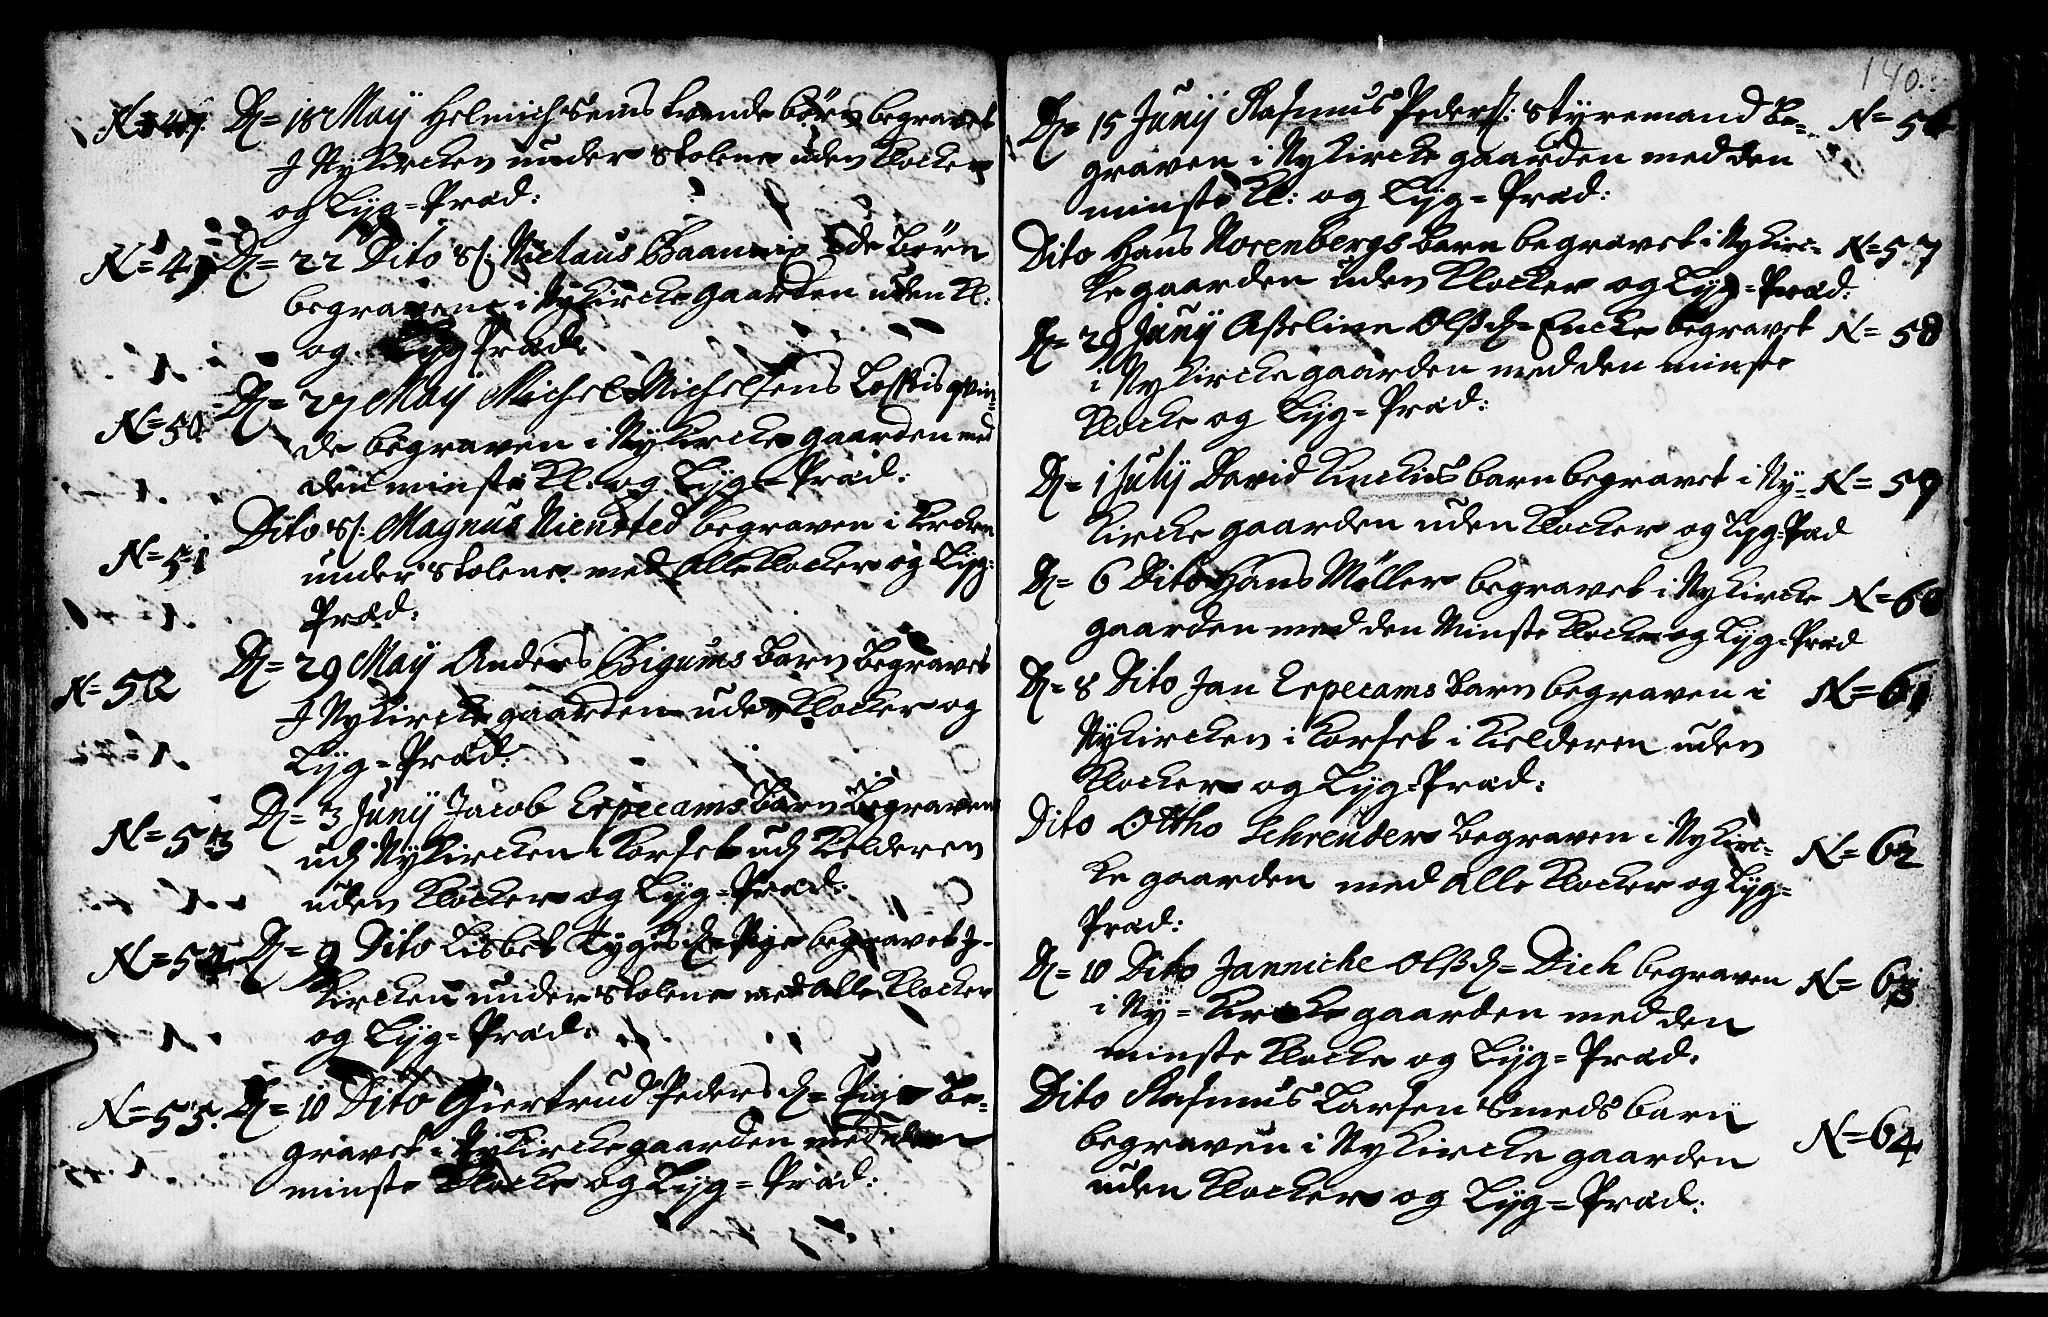 N=47. D= 18 May Helmich Sems tvende børn begravet
J Nykircken under Stolene uden Klocker
og Lyg=Præd:
N=49 D= 22 Dito Sl: Niclaus 2de Børn
begravene i Nykircke gaarden uden Kl:
og Lyg Præd:
N=50. D= 27 May Michel Michelsens qvin=
de begraven i Nykircke gaarden med
den minste Kl: og Lyg=Præd:
N=51 Dito Sl: Magnus Niensted begraven i Kircken
under Stolene med Alle Klocker og Lyg=
Præd:
N=52 D= 29 May Anders Bigums Barn Begravet
J Nykircke gaarden uden Klocker og
Lyg=Præd:
N=53 D= 3 Juny Jacob Erpecams Barn Begraven
udj Nykircken i Korset udj Kelderen
uden Klocker og Lyg=Præd:
N=54 D= 9 Dito Lisbet Tyges d= Pige begravet J=
Kircken under Stolene med Alle Klocker
og Lyg=Præd:
N=55. D= 10 Dito Giertrud Peders d= Pige Be=
gravet i Nykircke gaarden med den
minste Klocke og Lyg=Præd:
140.
D= 15 Juny Rasmus Peders: Styremand Be= N=56
graven i Nykircke gaarden med den
minste Kl: og Lyg=Præd:
Dito Hans Rosenbergs Barn begravet i Nykirc= N=57
ke gaarden uden Klocker og Lyg=Præd:
D= 29 Juny Asseline Olss d= Encke begravet N=58
i Nykircke gaarden med den minste
Klocke og Lyg=Præd:
D= 1 July David Kinckius barn begravet i Ny= N=59
kircke gaarden uden Klocker og Lyg=Præd
D= 6 Dito Hans Møller begravet i Nykircke N=60
gaarden med den Minste Klocke og Lyg=Præd
D= 8 Dito Jan Erpecams Barn begraven i N=61
Nykircken i Korset i Kielderen uden
Klocker og Lyg=Præd:
Dito Ottho Schreuder begraven i Nykirc= N=62
ke gaarden med Alle Klocker og Lyg=
Præd:
D= 10 Dito Janniche Olss d= Dich begraven N=63
i Ny=Kircke gaarden med den
minste Klocke og Lyg=Præd:
Dito Rasmus Larsen Smeds barn N=64
begraven i Nykircke gaarden
uden Klocker og Lyg=Præd: